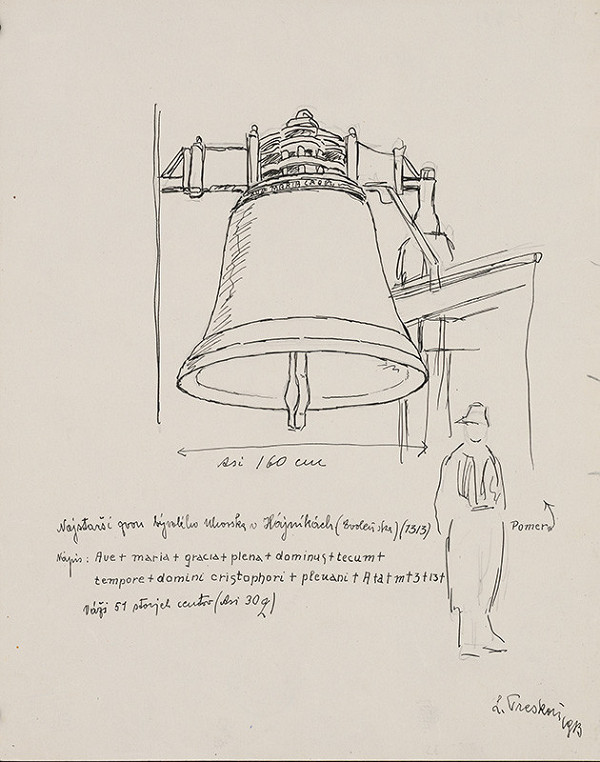 AVE MARIA
Asi 160 cm
Najstarší zvon bývalého Uhorska v Hájnikách (Zvolenská) (1313)
Pomer
Nápis: Ave + maria + gracia + plena + dominus + tecum +
tempore + domini cristophori + plevani +
Váži 51 starých centov (Asi 30 q)